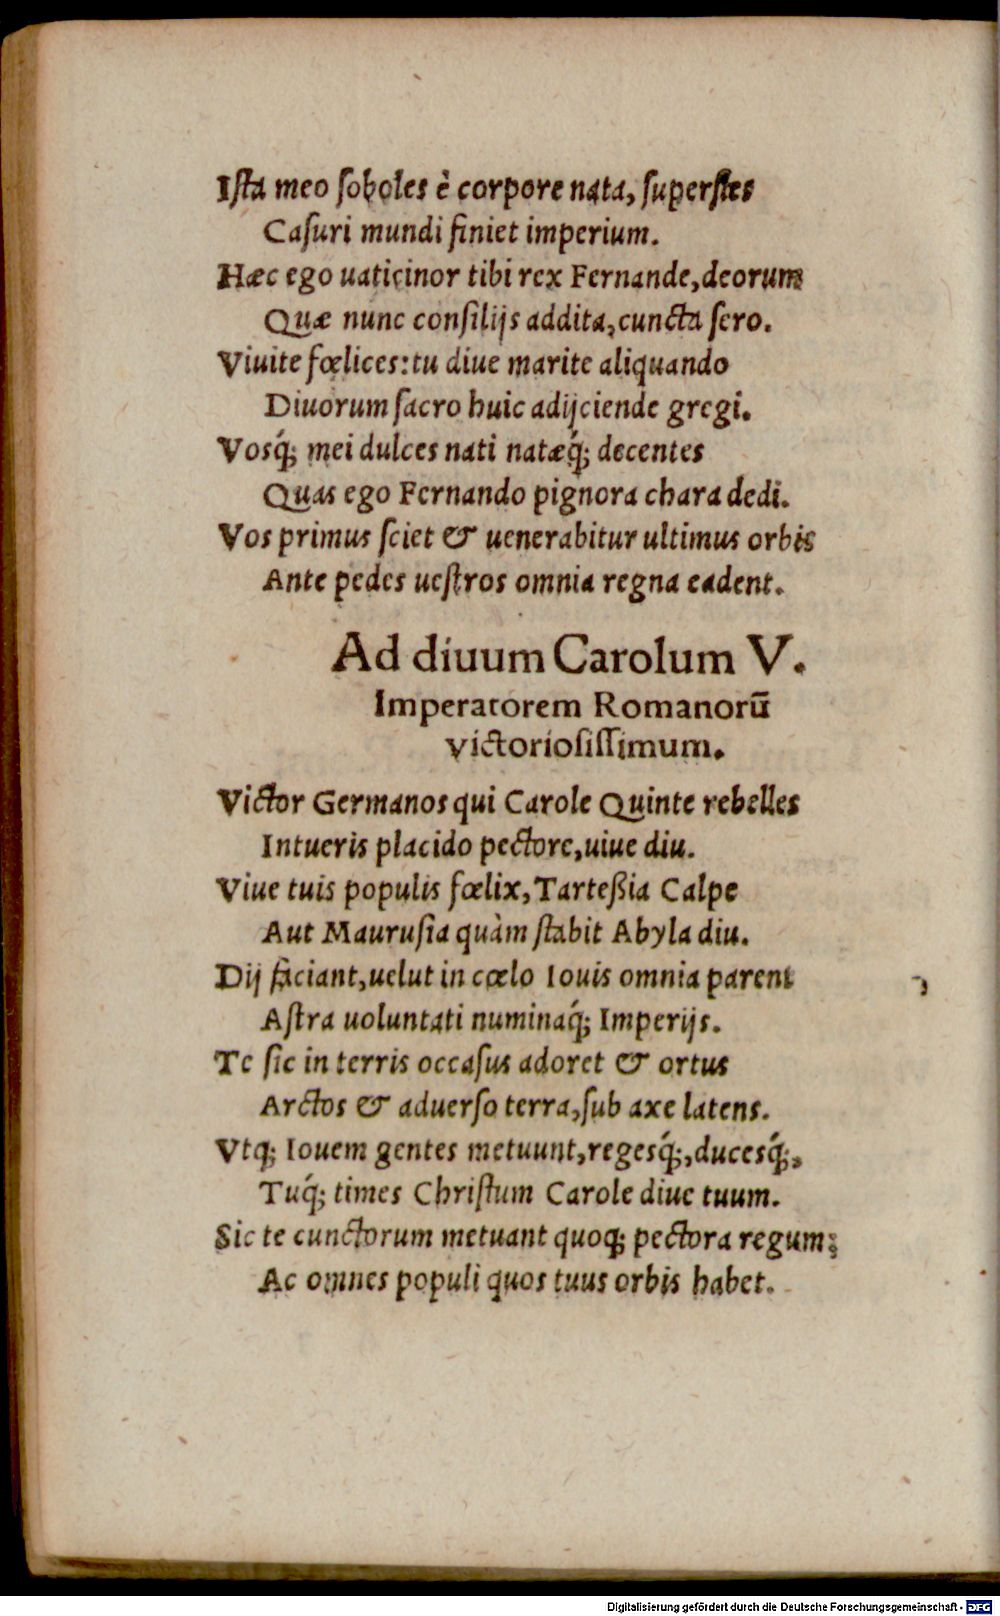 Ista meo soboles è corpore nata, superstes
Casuri mundi finiet imperium.
Hæc ego uaticinor tibi rex Fernande, deorum
Quæ nunc consilijs addita, cuncta sero.
Viuite fœlices: tu diue marite aliquando
Diuorum sacro huic adijciende gregi.
Vosq́; mei dulces nati natæq́; decentes
Quas ego Fernando pignora chara dedi.
Vos primus sciet & uenerabitur ultimus orbis
Ante pedes uestros omnia regna cadent.
Ad diuum Carolum V.
Imperatorem Romanorū
victoriosissimum.
Victor Germanos qui Carole Quinte rebelles
Intueris placido pectore, uiue diu.
Viue tuis populis fœlix, Tarteßia Calpe
Aut Maurusia quàm stabit Abyla diu.
Dij faciant, uelut in cœlo Iouis omnia parent
Astra uoluntati numinaq́; Imperijs.
Te sic in terris occasus adoret & ortus
Arctos & aduerso terra, sub axe latens.
Vtq; Iouem gentes metuunt, regesq́;, ducesq́;,
Tuq́; times Christum Carole diue tuum.
Sic te cunctorum metuant quoq; pectora regum;
Ac omnes populi quos tuus orbis habet.
Digitalisierung gefördert durch die Deutsche Forschungsgemeinschaft - DFG